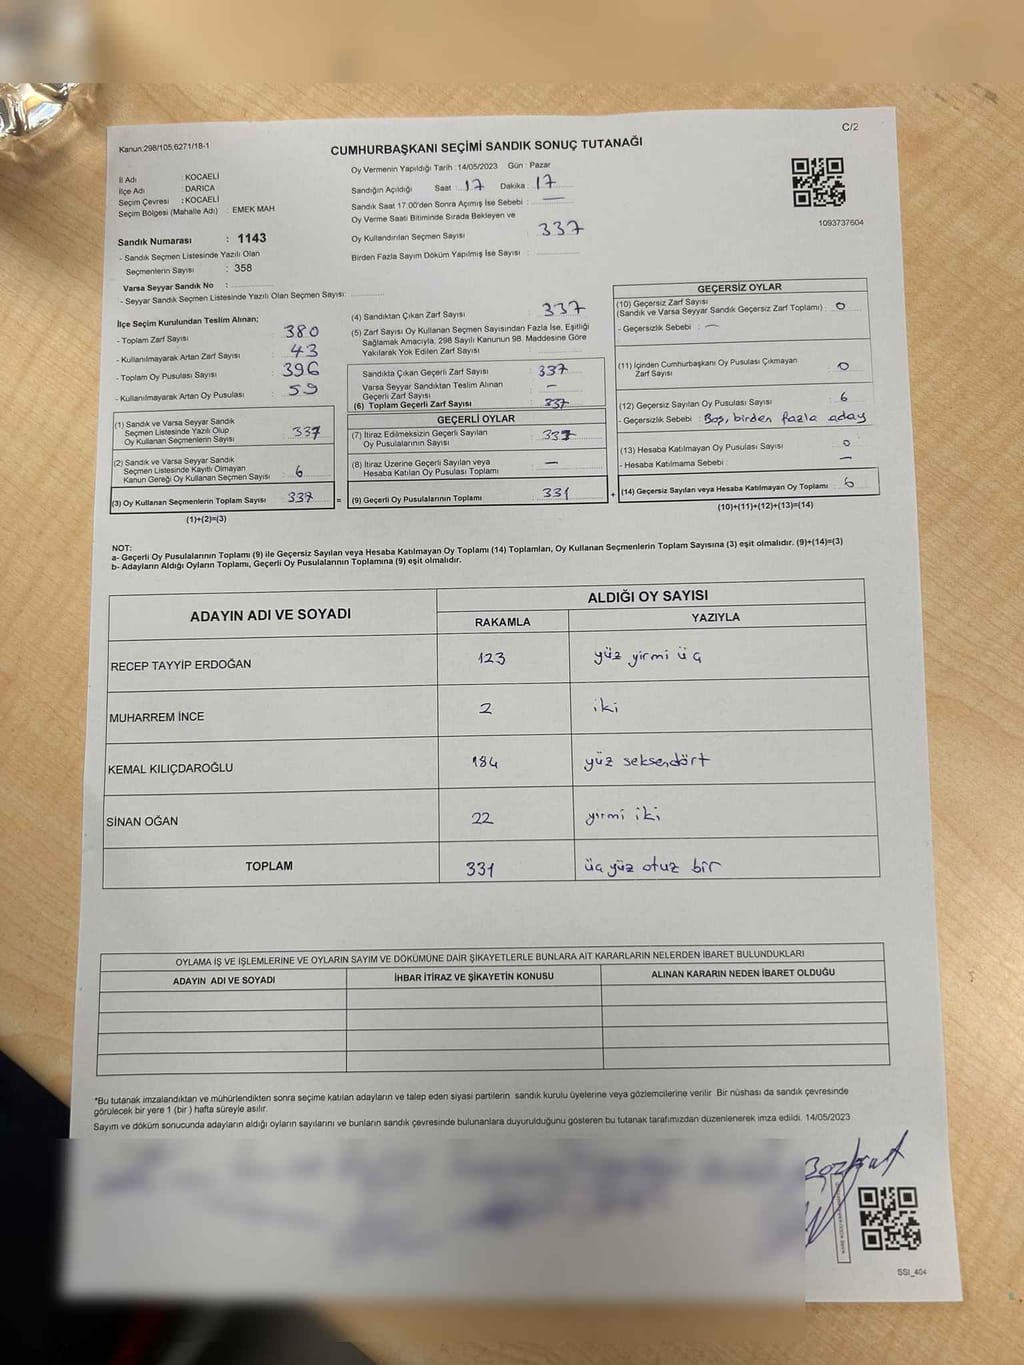 Kanun:298/105,6271/18-1
C/2
CUMHURBAŞKANI SEÇİMİ SANDIK SONUÇ TUTANAĞI
İl Adı : KOCAELİ
İlçe Adı : DARICA
Seçim Çevresi : KOCAELİ
Seçim Bölgesi (Mahalle Adı) : EMEK MAH.
Sandık Numarası : 1143
- Sandık Seçmen Listesinde Yazılı Olan
Seçmenlerin Sayısı : 358
Varsa Seyyar Sandık No :
- Seyyar Sandık Seçmen Listesinde Yazılı Olan Seçmen Sayısı:
Oy Vermenin Yapıldığı Tarih : 14/05/2023 Gün : Pazar
Sandığın Açıldığı Saat : 17 Dakika : 17
Sandık Saat 17.00'den Sonra Açımış İse Sebebi : —
Oy Verme Saati Bitiminde Sırada Bekleyen ve
Oy Kullandırılan Seçmen Sayısı : 337
Birden Fazla Sayım Döküm Yapılmış İse Sayısı :
1093737604
İlçe Seçim Kurulundan Teslim Alınan;
- Toplam Zarf Sayısı : 380
- Kullanılmayarak Artan Zarf Sayısı : 43
- Toplam Oy Pusulası Sayısı : 396
- Kullanılmayarak Artan Oy Pusulası : 59
(1) Sandık ve Varsa Seyyar Sandık
Seçmen Listesinde Yazılı Olup
Oy Kullanan Seçmenlerin Sayısı : 337
(2) Sandık ve Varsa Seyyar Sandık
Seçmen Listesinde Kayıtlı Olmayan
Kanun Gereği Oy Kullanan Seçmen Sayısı : 6
(3) Oy Kullanan Seçmenlerin Toplam Sayısı : 337 =
(1)+(2)=(3)
(4) Sandıktan Çıkan Zarf Sayısı : 337
(5) Zarf Sayısı Oy Kullanan Seçmen Sayısından Fazla İse, Eşitliği
Sağlamak Amacıyla, 298 Sayılı Kanunun 98. Maddesine Göre
Yakılarak Yok Edilen Zarf Sayısı :
Sandıkta Çıkan Geçerli Zarf Sayısı : 337
Varsa Seyyar Sandıktan Teslim Alınan
Geçerli Zarf Sayısı : —
(6) Toplam Geçerli Zarf Sayısı : 337
GEÇERLİ OYLAR
(7) İtiraz Edilmeksizin Geçerli Sayılan
Oy Pusulalarının Sayısı : 337
(8) İtiraz Üzerine Geçerli Sayılan veya
Hesaba Katılan Oy Pusulası Toplamı : —
(9) Geçerli Oy Pusulalarının Toplamı : 331 +
GEÇERSİZ OYLAR
(10) Geçersiz Zarf Sayısı
(Sandık ve Varsa Seyyar Sandık Geçersiz Zarf Toplamı) : 0
- Geçersizlik Sebebi : —
(11) İçinden Cumhurbaşkanı Oy Pusulası Çıkmayan
Zarf Sayısı : 0
(12) Geçersiz Sayılan Oy Pusulası Sayısı : 6
- Geçersizlik Sebebi : Boş, birden fazla aday
(13) Hesaba Katılmayan Oy Pusulası Sayısı : 0
- Hesaba Katılmama Sebebi : —
(14) Geçersiz Sayılan veya Hesaba Katılmayan Oy Toplamı : 6
(10)+(11)+(12)+(13)=(14)
NOT:
a- Geçerli Oy Pusulalarının Toplamı (9) ile Geçersiz Sayılan veya Hesaba Katılmayan Oy Toplamı (14) Toplamları, Oy Kullanan Seçmenlerin Toplam Sayısına (3) eşit olmalıdır. (9)+(14)=(3)
b- Adayların Aldığı Oyların Toplamı, Geçerli Oy Pusulalarının Toplamına (9) eşit olmalıdır.
ADAYIN ADI VE SOYADI
ALDIĞI OY SAYISI
RAKAMLA YAZIYLA
RECEP TAYYİP ERDOĞAN 123 yüz yirmi üç
MUHARREM İNCE 2 iki
KEMAL KILIÇDAROĞLU 184 yüz seksendört
SİNAN OĞAN 22 yirmi iki
TOPLAM 331 üçyüz otuz bir
OYLAMA İŞ VE İŞLEMLERİNE VE OYLARIN SAYIM VE DÖKÜMÜNE DAİR ŞİKAYETLERLE BUNLARA AİT KARARLARIN NELERDEN İBARET BULUNDUKLARI
ADAYIN ADI VE SOYADI İHBAR İTİRAZ VE ŞİKAYETİN KONUSU ALINAN KARARIN NEDEN İBARET OLDUĞU
*Bu tutanak imzalandıktan ve mühürlendikten sonra seçime katılan adayların ve talep eden siyasi partilerin sandık kurulu üyelerine veya gözlemcilerine verilir. Bir nüshası da sandık çevresinde
görülecek bir yere 1 (bir ) hafta süreyle asılır.
Sayım ve döküm sonucunda adayların aldığı oyların sayılarını ve bunların sandık çevresinde bulunanlara duyurulduğunu gösteren bu tutanak tarafımızdan düzenlenerek imza edildi. 14/05/2023
Bozkurt
SSI_404